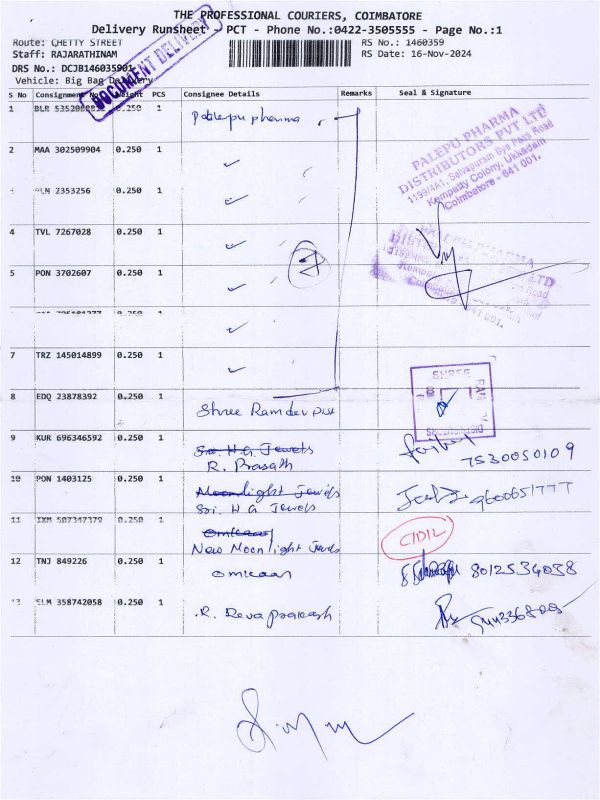 THE PROFESSIONAL COURIERS, COIMBATORE
Delivery Runsheet - PCT - Phone No.:0422-3505555 - Page No.:1
Route: CHETTY STREET
RS No.: 1460359
Staff: RAJARATHINAM
RS Date: 16-Nov-2024
DRS No.: DCJB146035901
Vehicle: Big Bag Delivery
DOCUMENT DELIVERY
S No Consignment No Weight PCS Consignee Details Remarks Seal & Signature
1 BLR 0.250 1 Palepu pharma
PALEPU PHARMA
DISTRIBUTORS PVT LTD
1199/4A1, Selvapuram Bye Pass Road
Kempatty Colony, Ukkadam
Coimbatore - 641 001.
2 MAA 302509904 0.250 1
2353256 0.250 1
4 TVL 7267028 0.250 1
5 PON 3702607 0.250 1
0.250 1
7 TRZ 145014899 0.250 1
8 EDQ 23878392 0.250 1 Shree Ramdev Dist
SHREE
9 KUR 696346592 0.250 1 Sri H.G. Jewels
R. Prasath
7530050109
10 PON 1403125 0.250 1 Moonlight Jewels
Sri. H G Jewels
11 IXM 507347379 0.250 1 Omkaar
New Moon light Jewels
CIDIL
12 TNJ 849226 0.250 1 Omkaar 8012534038
13 SLM 358742058 0.250 1 .R. Reva prakash